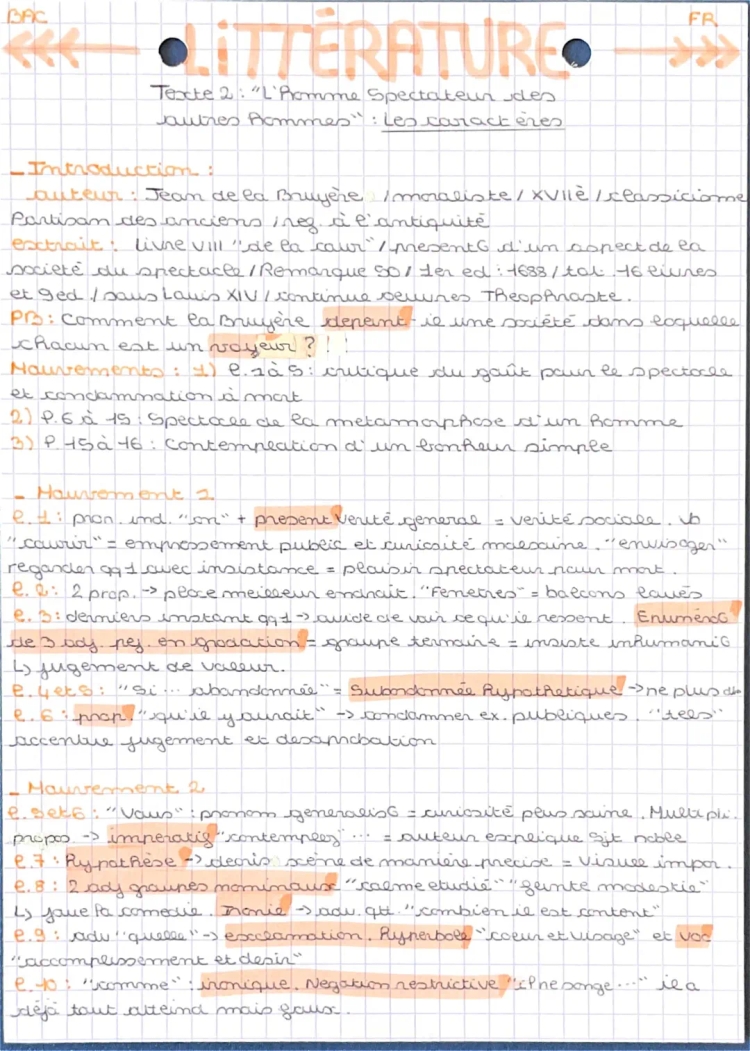 BAC FR
LiTTÉRATURE
Texte 2 : "L'Homme Spectateur des
autres hommes" : Les caractères
- Introduction :
auteur : Jean de la Bruyère / moraliste / XVIIè / classicisme
Partisan des anciens / reg. à l'antiquité
extrait : Livre VIII "de la cour" / present° d'un aspect de la
societé du spectacle / Remarque 50 / 1er ed : 1688 / tot. 16 livres
et 9ed / sous Louis XIV / continue oeuvres Theophraste.
PB : Comment la Bruyère depeint-il une société dans laquelle
chacun est un voyeur ? ! !
Mouvements : 1) l.1 à 5 : critique du goût pour le spectacle
et condamnation à mort
2) l.6 à 15 : Spectacle de la metamorphose d'un homme
3) l.15 à 16 : Contemplation d'un bonheur simple
- Mouvement 1
l.1 : pron. ind. "on" + present verité general = verité sociale. vb
"courir" = empressement public et curiosité malsaine. "envisager"
regarder qq1 avec insistance = plaisir spectateur pour mort.
l.2 : 2 prop. -> place meilleur endroit. "Fenetres" = balcons loués
l.3 : derniers instant qq1 -> avide de voir ce qu'il ressent. Enumérat°
de 3 adj. pej. en gradation = groupe ternaire = insiste inhumanité
↳ jugement de valeur.
l.4 et 5 : "Si ... abandonnée" = Subordonnée hypothetique -> ne plus
l.6 : prop. "qu'il y aurait" -> condamner ex. publiques. "telles"
accentue jugement et desaprobation
- Mouvement 2
l.5et6 : "Vous" : pronom generalis° = curiosité plus saine. Multipli.
propos. -> imperatif "contemplez" ... = auteur explique sjt noble
l.7 : Hypothèse -> decris scène de manière precise = visuel impor.
l.8 : 2 adj groupes nominaux "calme etudié" "feinte modestie"
↳ joue la comedie. Ironie -> adv. qtt. "combien il est content"
l.9 : adv "quelle" -> exclamation. Hyperbole "coeur et visage" et voc
"accomplissement et desir"
l.10 : "comme" : ironique. Negation restrictive "il ne songe ..." il a
déjà tout atteind mais faux.